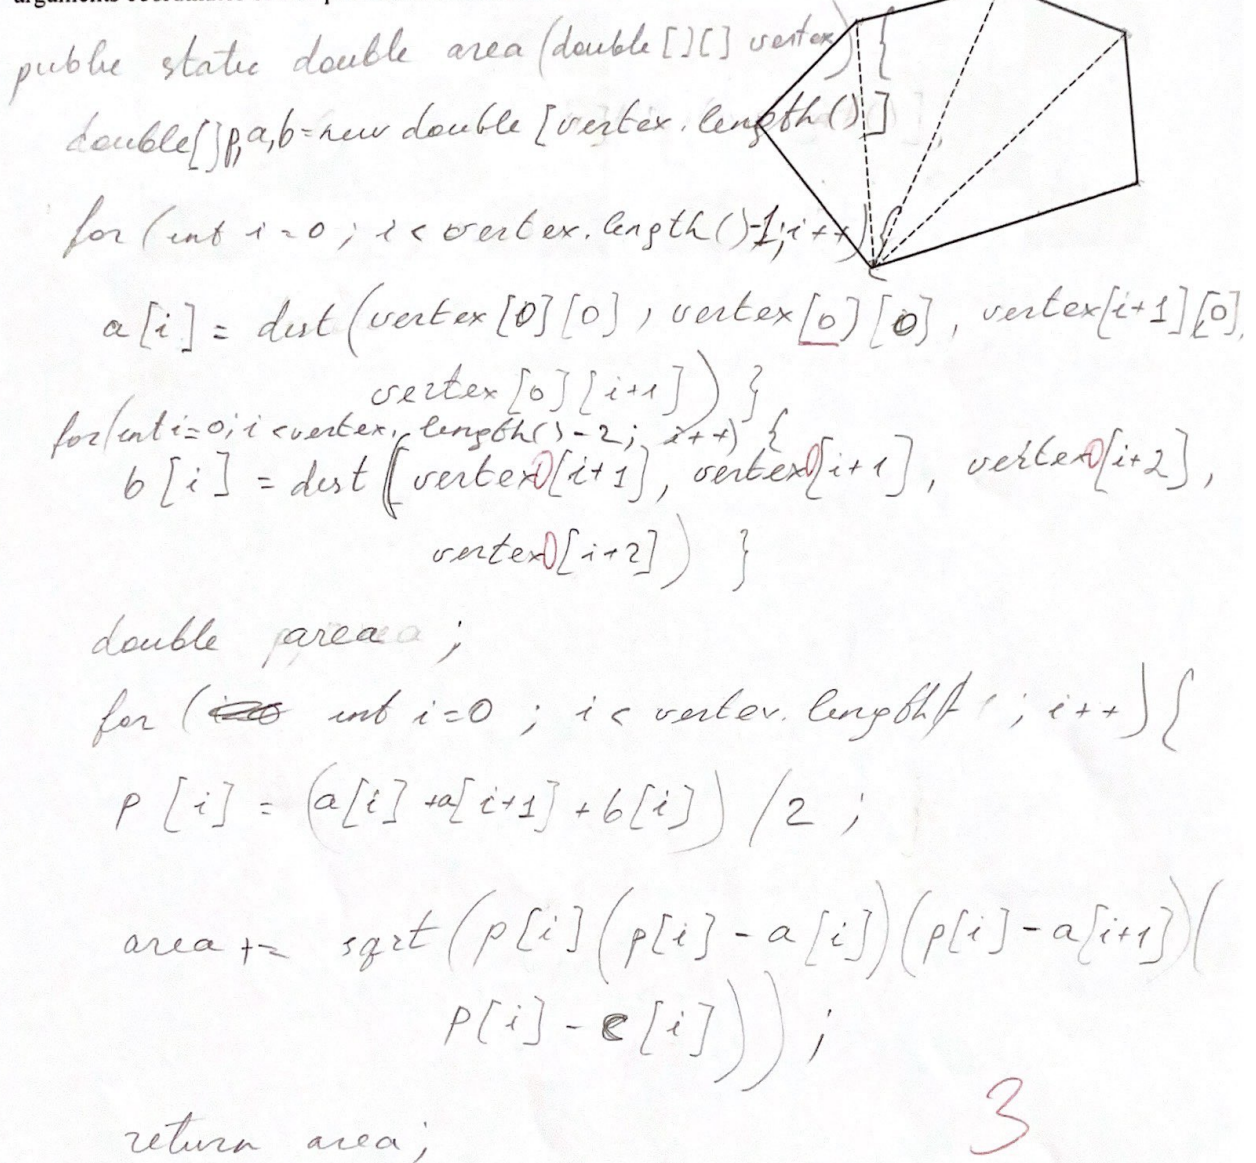 public static double area (double [][] vertex) {
double[] p,a,b = new double [vertex.length()]
for (int i = 0 ; i < vertex.length()-1; i++) {
a[i] = dist (vertex [0][0] , vertex [0][0] , vertex[i+1][0],
vertex [0][i+1] ) }
for(int i=0; i < vertex. length()-2; i++) {
b[i] = dist (vertex[][i+1], vertex[][i+1], vertex[][i+2],
vertex[][i+2]) }
double area ;
for ( int i=0 ; i < vertex. length ; i++) {
p [i] = (a[i] +a[i+1] + b[i]) /2 ;
area += sqrt (p[i] (p[i] - a[i])(p[i] - a[i+1])(
p[i] - c[i])) ;
3
return area;